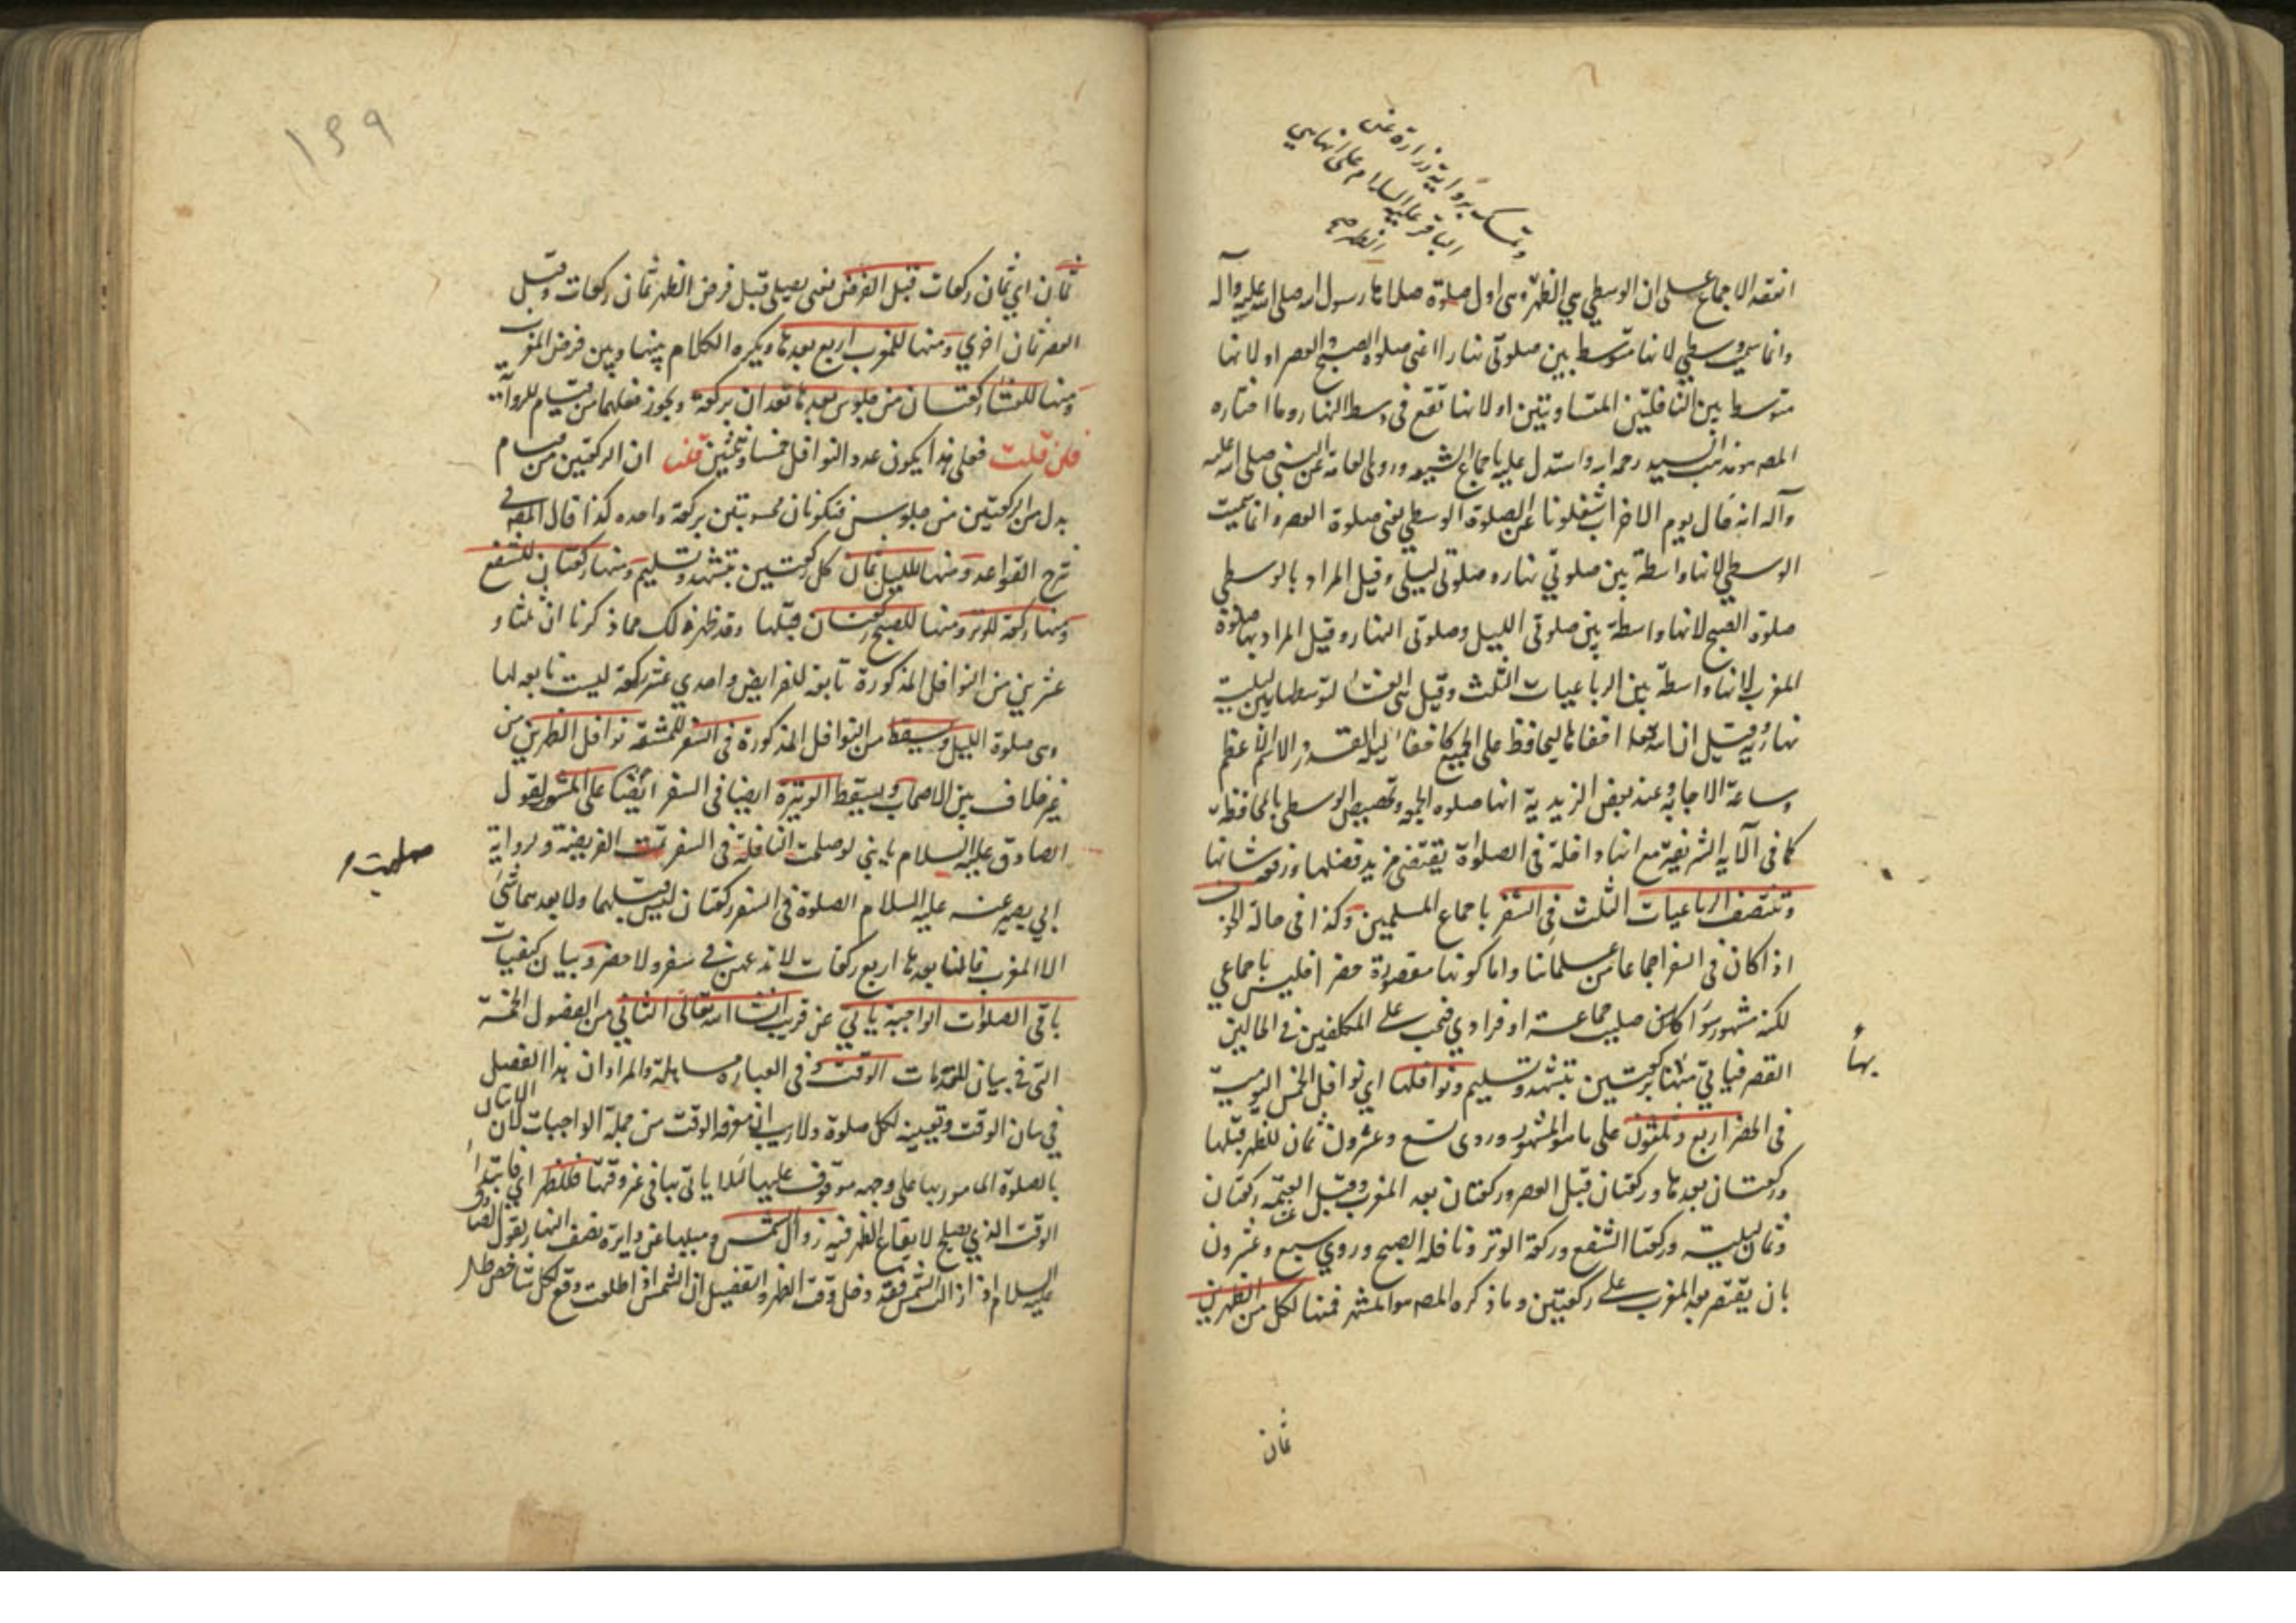 وتمسك برواية زرارة عن
الباقر عليه السلام على انها هي
الظهر صح
انعقد الاجماع على ان الوسطي هي الظهر وهى اول صلوة صلاها رسول الله صلى الله عليه وآله
وانما سميت وسطي لانها متوسط بين صلوتى نهار اعنى صلوة الصبح والعصر او لانها
متوسط بين النافلتين المتساويتين او لانها تقع فى وسط النهار وما اختاره
المصه مذهب السيد رحمه الله واستدل عليه باجماع الشيعه وروي العامة عن النبى صلى الله عليه
وآله انه قال يوم الاخراب شغلونا عن الصلوة الوسطي يعنى صلوة العصر وانما سميت
الوسطي لانها واسطة بين صلوتي نهار وصلوتى ليل وقيل المراد بالوسطي
صلوة الصبح لانها واسطة بين صلوتى الليل وصلوتى النهار وقيل المراد بها صلوة
المغرب لانها واسطة بين الرباعيات الثلث وقيل هى العشاء لتوسطها بين ليلية
نهارية وقيل ان الله تعالى اخفاها ليحافظ على الجميع كاخفاء ليلة القدر والاسم الاعظم
وساعة الاجابة وعند بعض الزيدية انها صلوه الجمعه وتخصيص الوسطى بالمحافظة
كما فى الآية الشريفة مع انها داخلة فى الصلوات يقتضى مزيد فضلها ورفعه شانها
وتنتصف الرباعيات الثلث فى السفر باجماع المسلمين وكذا فى حالة الخوف
اذا كان فى السفر اجماعا من علمائنا واما كونها مقصورة حضرا فليس باجماعي
لكنه مشهور سواء كان صليت جماعة او فرادي فتجب على المكلفين فى الحالين
القصر فياتي منها بركعتين بتشهد وتسليم ونوافلها اي نوافل الخمس اليومية
بها
فى الحضر اربع وثلثون على ما هو المشهور وروى تسع وعشرون ثمان للظهر قبلها
وركعتان بعدها وركعتان قبل العصر وركعتان بعد المغرب وقبل العتمة ركعتان
وثمان ليلية وركعتا الشفع وركعة الوتر ونافلة الصبح وروي سبع وعشرون
بان يقتصر بعد المغرب على ركعتين وما ذكره المصه هو المشهور فمنها لكل من الظهرين
ثمان
١٣٩
ثمان اي ثمان ركعات قبل الفرض يعنى يصلى قبل فرض الظهر ثمان ركعات وقبل
العصر ثمان اخري ومنها للمغرب اربع بعدها ويكره الكلام بينها وبين فرض المغرب
ومنها للعشاء ركعتان من جلوس بعدها تعدان بركعة ويجوز فعلهما من قيام للرواية
فان قلت فعلى هذا يكون عدد النوافل خمسا وثلثين قلنا ان الركعتين من قيام
بدل من الركعتين من جلوس فتكونان محسوبتين بركعة واحده كذا قال المصه في
شرح القواعد ومنها لليل ثمان كل ركعتين بتشهد وتسليم ومنها ركعتان للشفع
ومنها ركعة للوتر ومنها للصبح ركعتان قبلها وقد ظهر لك مما ذكرنا ان ثلثا و
عشرين من النوافل المذكورة تابعة للفرايض واحدي عشر ركعة ليست تابعه لها
وهى صلوة الليل ويسقط من النوافل المذكورة فى السفر للمشقة نوافل الظهرين من
غير خلاف بين الاصحاب ويسقط الوتيرة ايضا فى السفر ايضا على المشهور لقول
الصادق عليه السلام يا بني لو صلحت النافلة فى السفر تمت الفريضة ولرواية
صلحت
ابي بصير عنه عليه السلام الصلوة فى السفر ركعتان ليس قبلهما ولا بعدهما شئ
الا المغرب فان لها بعدها اربع ركعات لا تدعهن في سفر ولا حضر وبيان كيفيات
باقى الصلوات الواجبة ياتي عن قريب انشا الله تعالى الثاني من الفصول الخمسة
التى فى بيان المقدمات الوقت وفى العباره مساهلة والمراد ان هذا الفصل
في بيان الوقت وتعيينه لكل صلوة ولا ريب ان معرفة الوقت من جملة الواجبات لان الاتيان
بالصلوة المامور بها على وجهه موقوف عليها لئلا ياتى بها فى غير وقتها فللظهر اي فابتداء
الوقت الذي يصلح لايقاع الظهر فيه زوال الشمس وميلها عن دايرة نصف النهار لقول الصادق
عليه السلام اذا زالت الشمس فقد دخل وقت الظهر والتفصيل ان الشمس اذا طلعت وقع لكل شاخص ظل